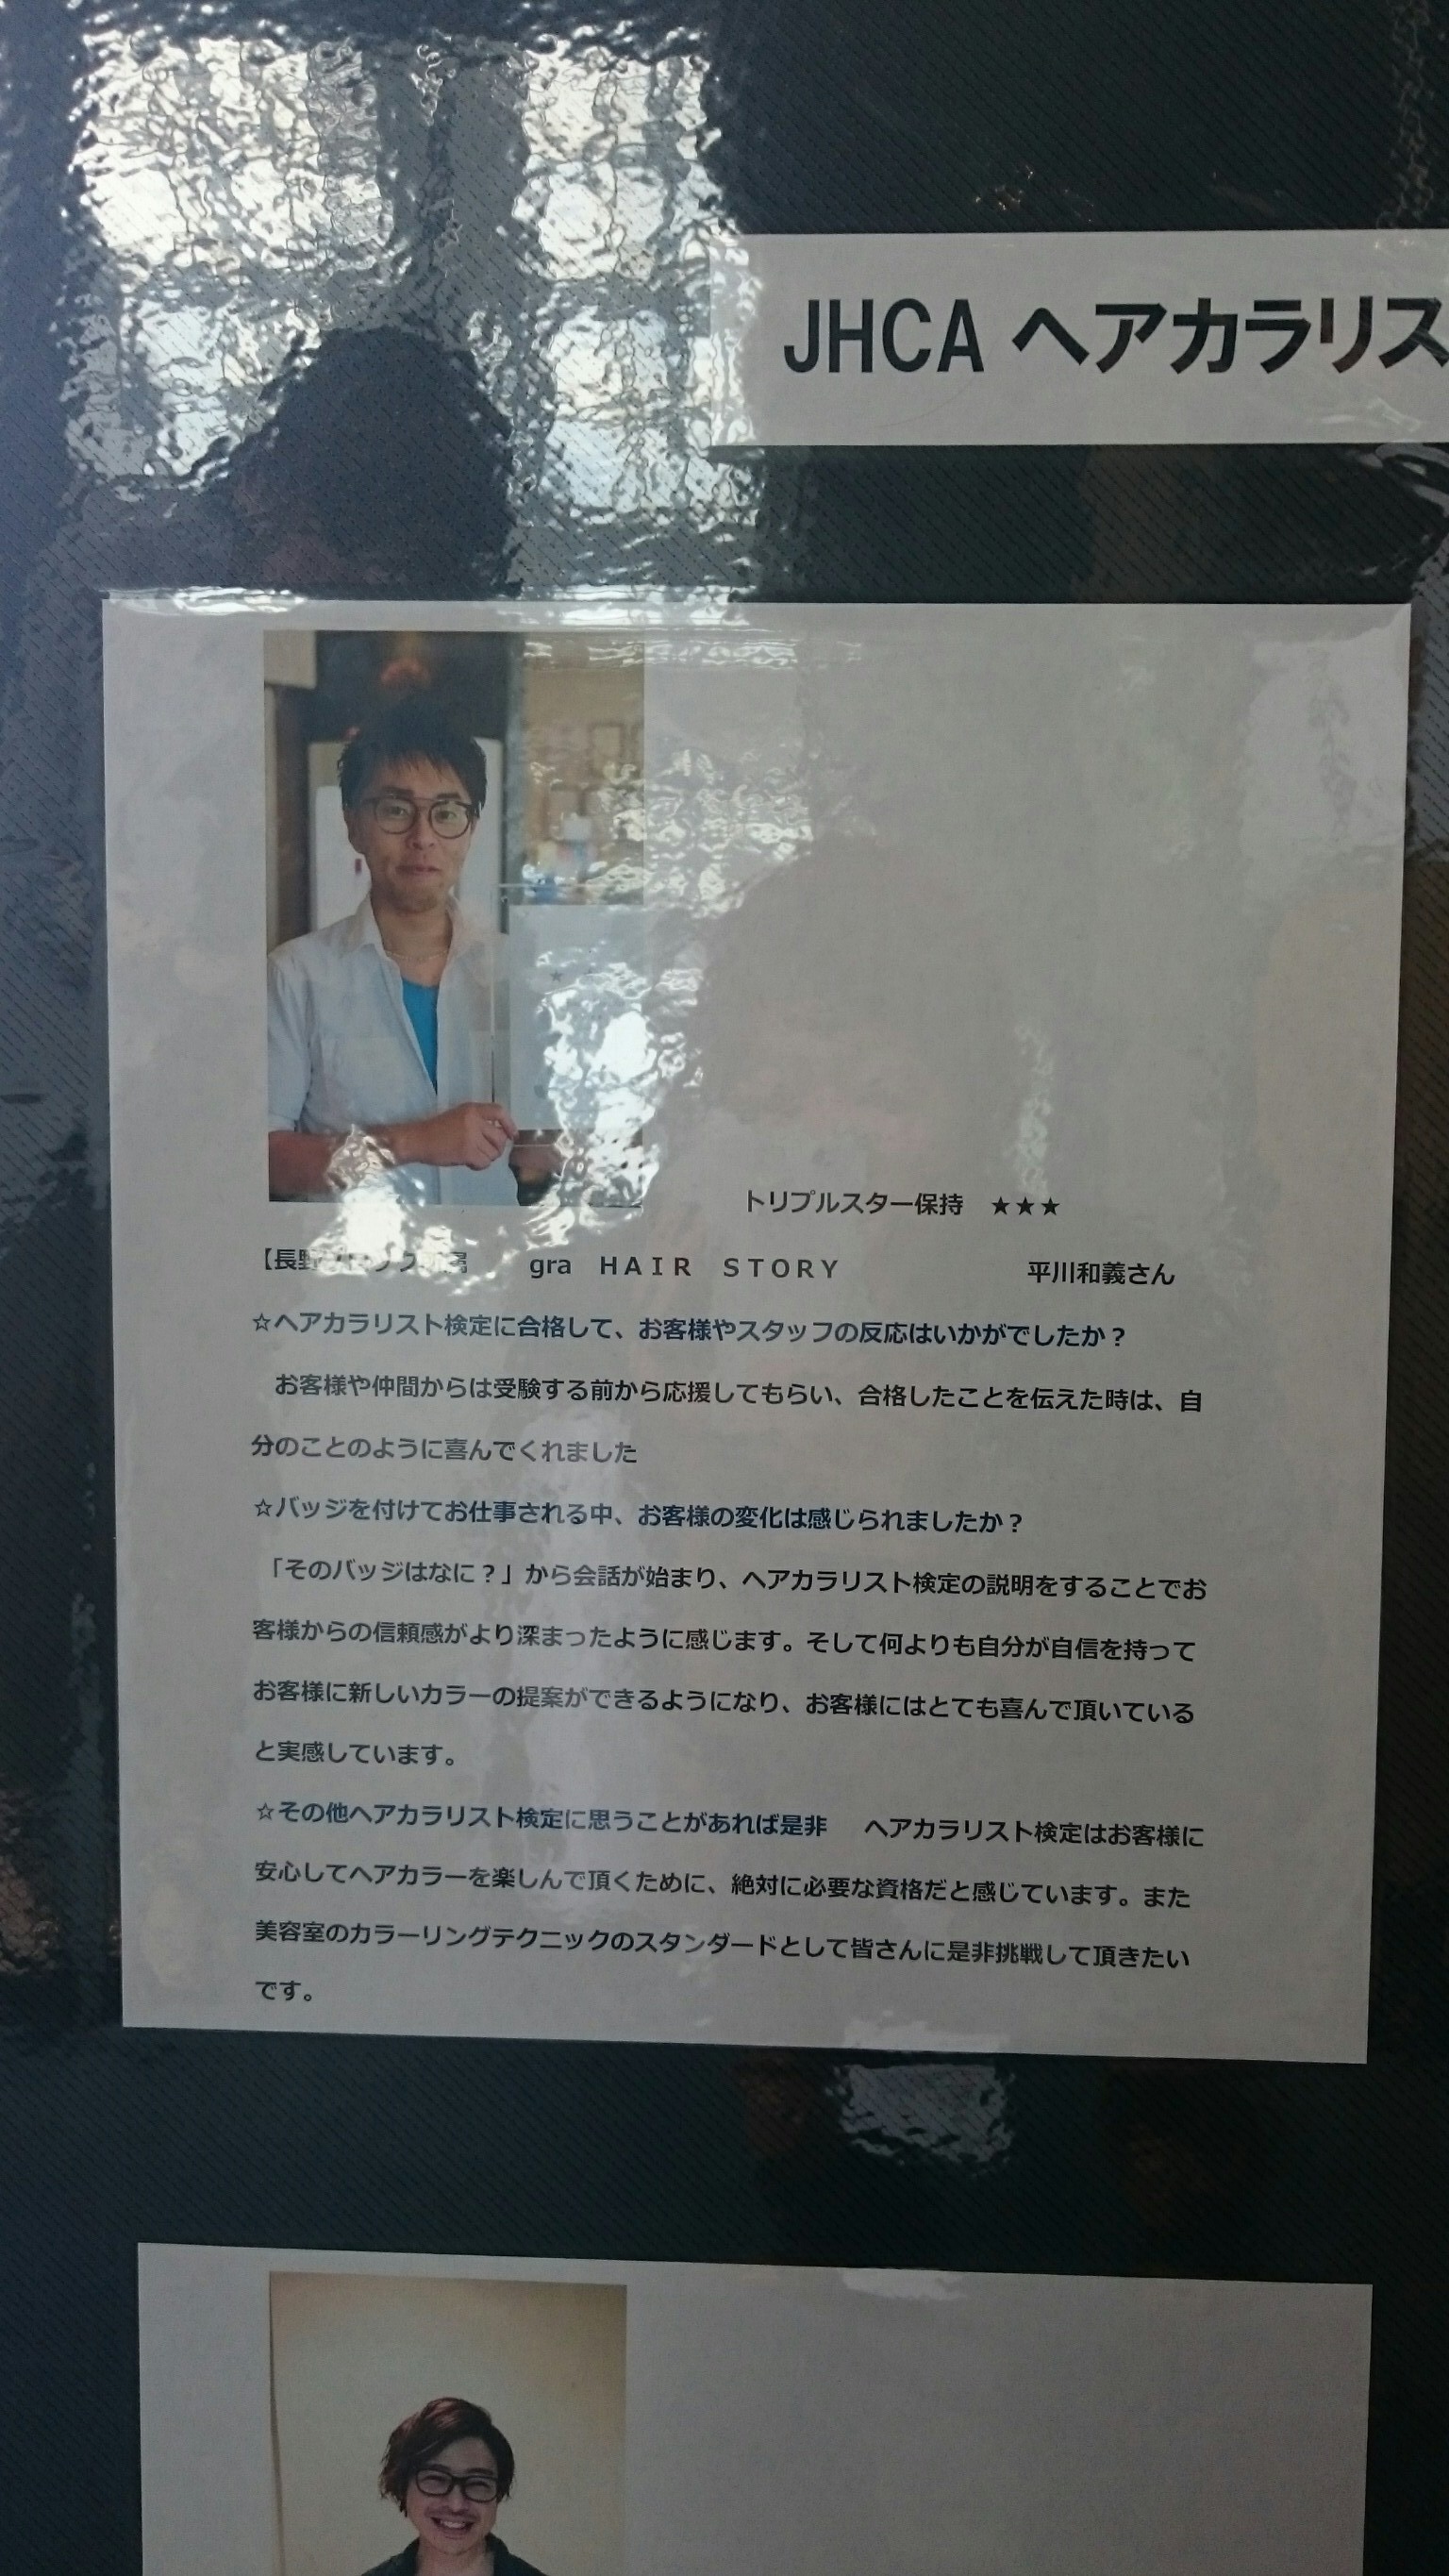 JHCA ヘアカラリス
トリプルスター保持 ★★★
【長野 gra HAIR STORY 平川和義さん
☆ヘアカラリスト検定に合格して、お客様やスタッフの反応はいかがでしたか？
お客様や仲間からは受験する前から応援してもらい、合格したことを伝えた時は、自
分のことのように喜んでくれました
☆バッジを付けてお仕事される中、お客様の変化は感じられましたか？
「そのバッジはなに？」から会話が始まり、ヘアカラリスト検定の説明をすることでお
客様からの信頼感がより深まったように感じます。そして何よりも自分が自信を持って
お客様に新しいカラーの提案ができるようになり、お客様にはとても喜んで頂いている
と実感しています。
☆その他ヘアカラリスト検定に思うことがあれば是非 ヘアカラリスト検定はお客様に
安心してヘアカラーを楽しんで頂くために、絶対に必要な資格だと感じています。また
美容室のカラーリングテクニックのスタンダードとして皆さんに是非挑戦して頂きたい
です。